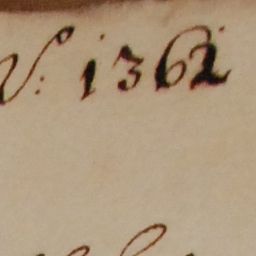 V: 1362